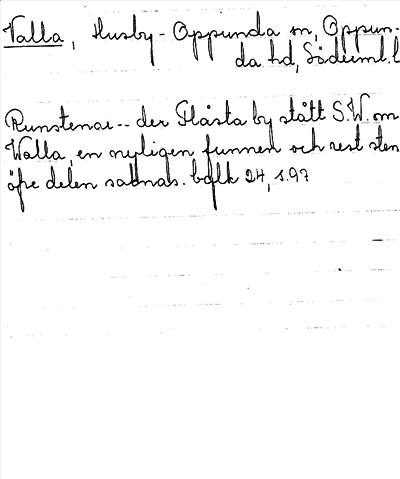 Valla, Husby-Oppunda sn, Oppun-
da hd, Söderml. l
Runstenar -- der Flåsta by stått S.W. om
Walla, en nyligen funnen och rest sten
öfre delen saknas. bqlk 24, s. 97